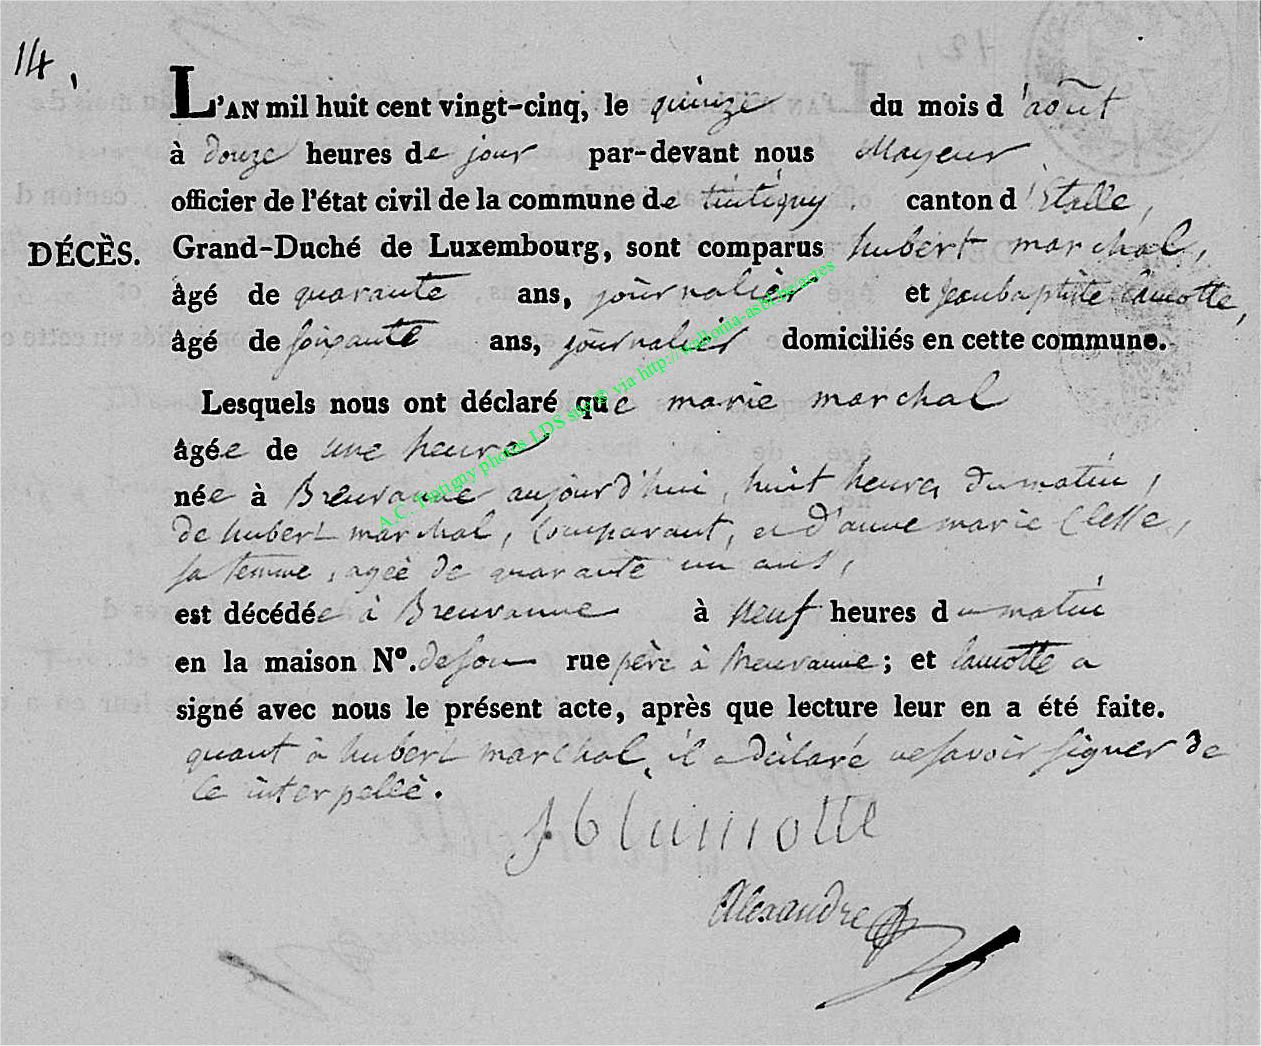 14,
L'AN mil huit cent vingt-cinq, le quinze du mois d'août
à douze heures de jour par-devant nous Mayeur
officier de l'état civil de la commune de tintigny. canton d'Etalle,
DÉCÈS.
Grand-Duché de Luxembourg, sont comparus hubert marchal,
âgé de quarante ans, journalier et jeanbaptiste lamotte,
âgé de soixante ans, journalier domiciliés en cette commune.
Lesquels nous ont déclaré que marie marchal
âgée de une heure
née à Breuvanne aujourd'hui, huit heures du matin,
de hubert marchal, comparant, et d'anne marie Clesse,
sa femme, agée de quarante un ans,
est décédée à Breuvanne à neuf heures du matin
en la maison Nº. de son rue père à breuvanne; et lamotte a
signé avec nous le présent acte, après que lecture leur en a été faite.
quant à hubert marchal, il a déclaré ne savoir signer de
ce interpellé.
JBlamotte
Alexandre
A.C. Tintigny photos LDS sur ® via http://wallonia-asbl.be/actes